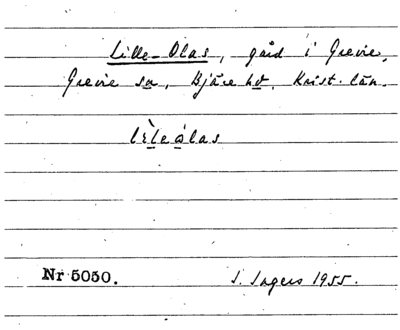 Lille-Olas, gård i Grevie,
Grevie sn, Bjäre hd, Krist. län.
lìleòlas
Nr 5050.
I. Ingers 1955.